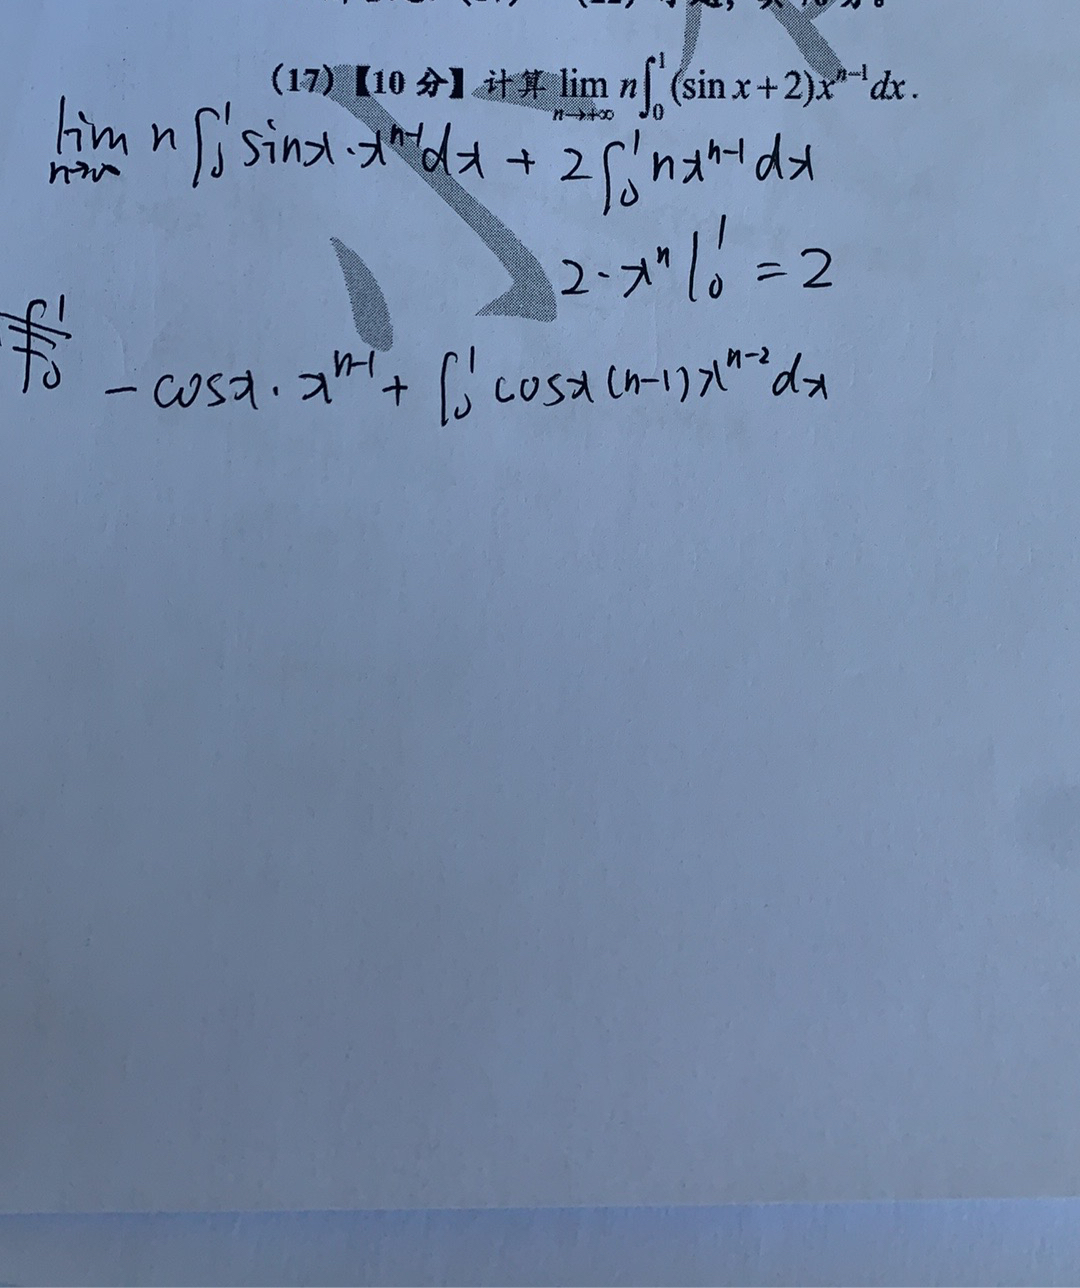 (17)【10 分】计算 lim n→+∞ n∫₀¹(sin x+2)xⁿ⁻¹dx.
lim n→∞ n∫₀¹ sinx·xⁿ⁻¹dx + 2∫₀¹ nxⁿ⁻¹dx
2·xⁿ|₀¹ = 2
- cosx·xⁿ⁻¹ + ∫₀¹ cosx(n-1)xⁿ⁻²dx